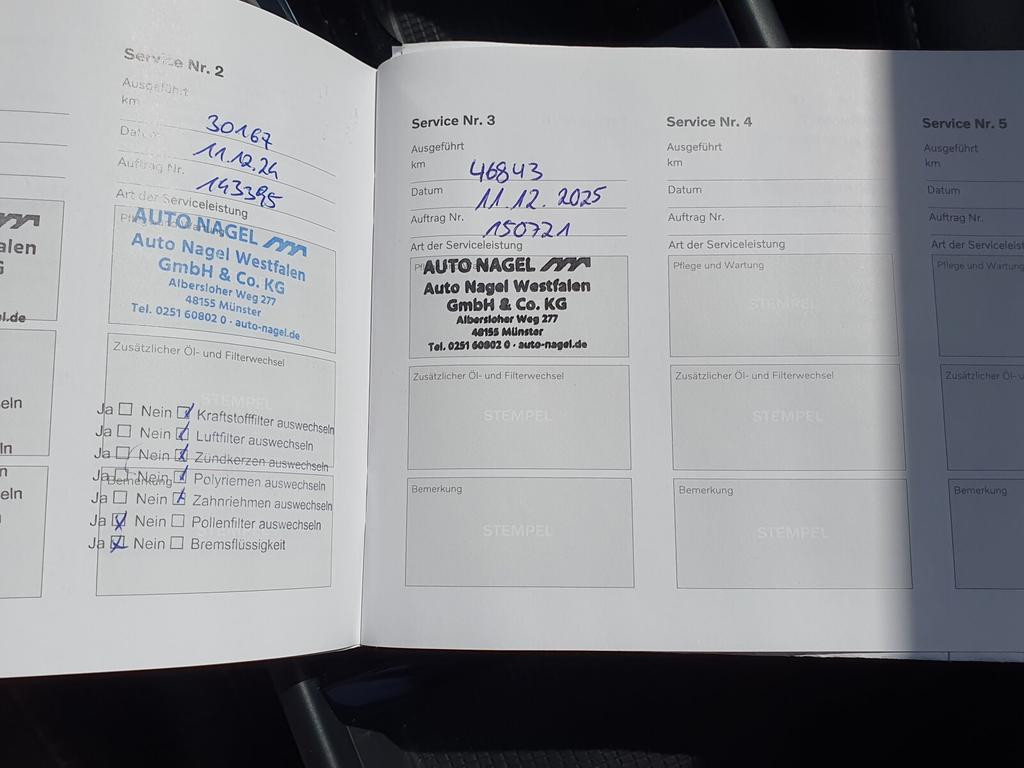 alen
G
l.de
eln
ln
n
eln
Service Nr. 2
Ausgeführt
km
30167
Datum
11.12.24
Auftrag Nr.
143395
Art der Serviceleistung
AUTO NAGEL
Auto Nagel Westfalen
GmbH & Co. KG
Albersloher Weg 277
48155 Münster
Tel. 0251 60802 0 · auto-nagel.de
Zusätzlicher Öl- und Filterwechsel
STEMPEL
Ja Nein Kraftstofffilter auswechseln
Ja Nein Luftfilter auswechseln
Ja Nein Zündkerzen auswechseln
Ja Nein Polyriemen auswechseln
Bemerkung
Ja Nein Zahnriehmen auswechseln
Ja Nein Pollenfilter auswechseln
Ja Nein Bremsflüssigkeit
Service Nr. 3
Ausgeführt
km
46843
Datum
11.12.2025
Auftrag Nr.
150721
Art der Serviceleistung
AUTO NAGEL
Auto Nagel Westfalen
GmbH & Co. KG
Albersloher Weg 277
48155 Münster
Tel. 0251 60802 0 · auto-nagel.de
Zusätzlicher Öl- und Filterwechsel
STEMPEL
Bemerkung
STEMPEL
Service Nr. 4
Ausgeführt
km
Datum
Auftrag Nr.
Art der Serviceleistung
Pflege und Wartung
STEMPEL
Zusätzlicher Öl- und Filterwechsel
STEMPEL
Bemerkung
STEMPEL
Service Nr. 5
Ausgeführt
km
Datum
Auftrag Nr.
Art der Serviceleist
Pflege und Wartung
Zusätzlicher Öl- und
Bemerkung